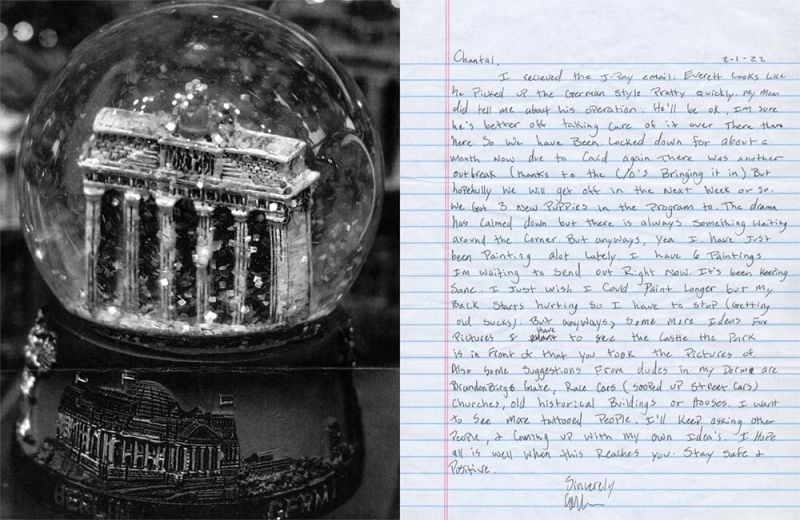 BERLIN GERM
Chantal, 2-1-22
I recieved the J-Pay email. Everett Looks Like
he Picked up the German Style Pretty Quickly. My Mom
did tell me about his operation. He'll be ok, I'm sure
he's better off taking Care of it over There than
here So We have Been Locked down for about a
month Now due to Covid again. There was another
outbreak (thanks to the C/O's Bringing it in) But
hopefully We will get off in the Next Week or so.
We Got 3 New Puppies in the Program to. The drama
has Calmed down but there is always Something Waiting
around the Corner. But anyways, yea I have Just
been Painting alot Lately. I have 6 Paintings
Im waiting to Send out Right Now. It's been Keeping
Sane. I Just wish I Could Paint Longer but my
Back Starts hurting So I have to stop (Getting
old Sucks). But anyways, Some more Ideas For
Pictures I have to see the Castle the Park
is in Front of that you took the Pictures of.
Also Some Suggestions From dudes in my Dorm are
BrandonBirg Gate, Race Cars (Sooped up Street Cars)
Churches, old historical Buildings or Houses. I want
to See More tattooed People. I'll Keep asking other
People, & Coming up With my own Idea's. I Hope
all is well When this Reaches you. Stay Safe &
Positive.
Sincerely